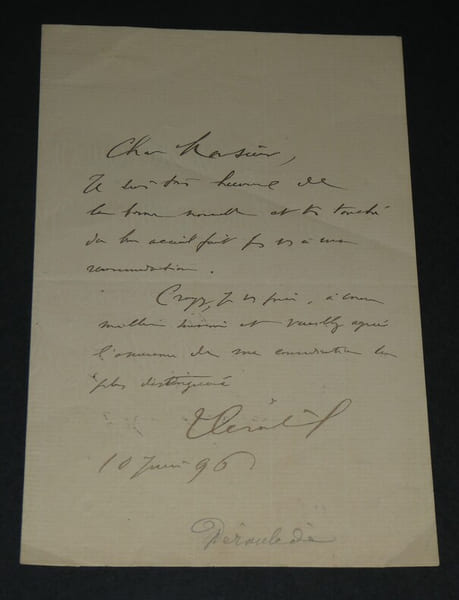 Cher Monsieur,
Je suis très heureux de
la bonne nouvelle et très touché
du bon accueil fait par vs à ma
recommandation.
Croyez, je vs prie, à mon
meilleur souvenir et veuillez agréer
l'assurance de ma considération la
plus distinguée
10 Juin 96
Déroulède